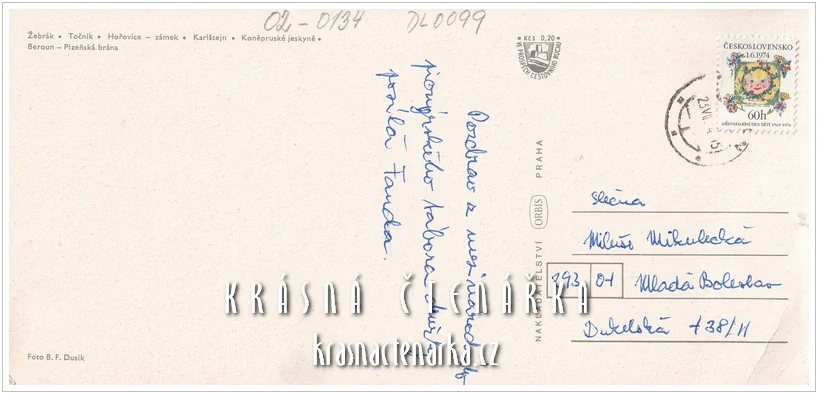 02-0134 DL0099
Žebrák • Točník • Hořovice – zámek • Karlštejn • Koněpruské jeskyně •
Beroun – Plzeňská brána
Kčs 0,20
VE PROSPĚCH CESTOVNÍHO RUCHU
ČESKOSLOVENSKO
1.6.1974
60h
MEZINÁRODNÍ DEN DĚTÍ 1949-1974
Pozdrav z mezinárodního
pionýrského tábora
posílá Fanda.
NAKLADATELSTVÍ ORBIS PRAHA
slečna
Miluše Mikulecká
293 01 Mladá Boleslav
Dukelská 738/II
KRÁSNÁ ČTENÁŘKA
krasnactenarka.cz
Foto B. F. Dusík